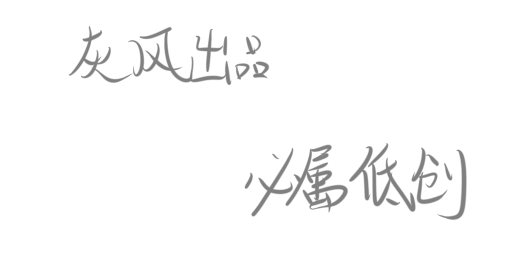 灰风出品
必属低创